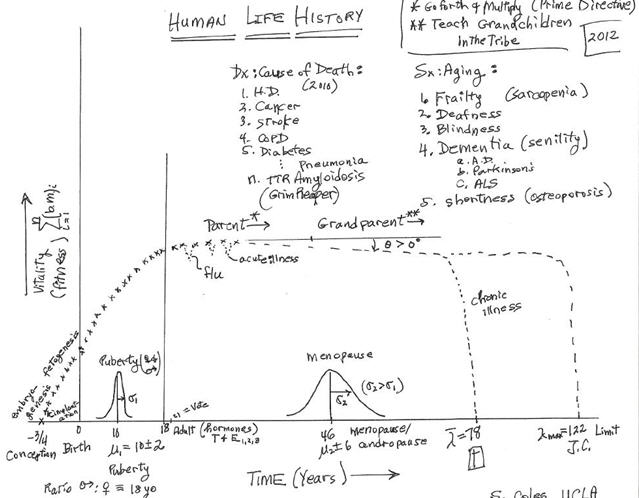 * Go forth & Multiply (Prime Directive)
** Teach Grandchildren
In the Tribe
2012
HUMAN LIFE HISTORY
Dx: Cause of Death:
(2010)
1. H.D.
2. Cancer
3. Stroke
4. COPD
5. Diabetes
⋮ Pneumonia
n. TTR Amyloidosis
(Grim Reaper)
Sx: Aging:
1. Frailty (sarcopenia)
2. Deafness
3. Blindness
4. Dementia (senility)
a. A.D.
b. Parkinson's
c. ALS
5. Shortness (osteoporosis)
Parent*
Grandparent**
θ > 0°
flu
acute illness
chronic
illness
Vitality
(fitness)
Embryo-
genesis
fetogenesis
Puberty
σ1
menopause
σ2
(σ2>σ1)
= Vote
-3/4
0
16
18
46
λ̄ = 78
λmax = 122
Limit
J.C.
Conception
Birth
μ1 = 10 ± 2
Puberty
Adult (hormones)
T + E1,2,3
menopause/
μ2 ± 6 andropause
Ratio ♂: ♀ ≡ 18 yo
TIME (Years)
S. Coles, UCLA